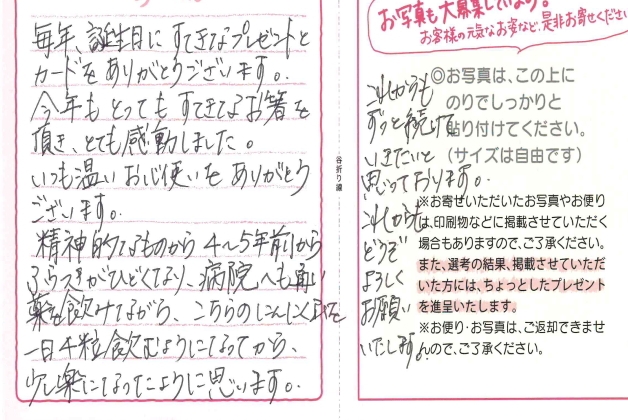 毎年、誕生日にすてきなプレゼントと
カードをありがとうございます。
今年もとってもすてきなお箸を
頂き、とても感動しました。
いつも温いお心使いをありがとう
ございます。
精神的なものから4〜5年前から
ふらつきがひどくなり、病院へも通い
薬を飲みながら、こちらのにんにく玉を
一日4粒飲むようになってから、
少し楽になったように思います。
谷折り線
お写真も大募集しています!
お客様の元気なお姿など、是非お寄せください
◎お写真は、この上に
のりでしっかりと
貼り付けてください。
(サイズは自由です)
これからも
ずっと続けて
いきたいと
思っております。
これからも
どうぞ
よろしく
お願い
いたします。
※お寄せいただいたお写真やお便り
は、印刷物などに掲載させていただく
場合もありますので、ご了承ください。
また、選考の結果、掲載させていただ
いた方には、ちょっとしたプレゼント
を進呈いたします。
※お便り・お写真は、ご返却できませ
んので、ご了承ください。